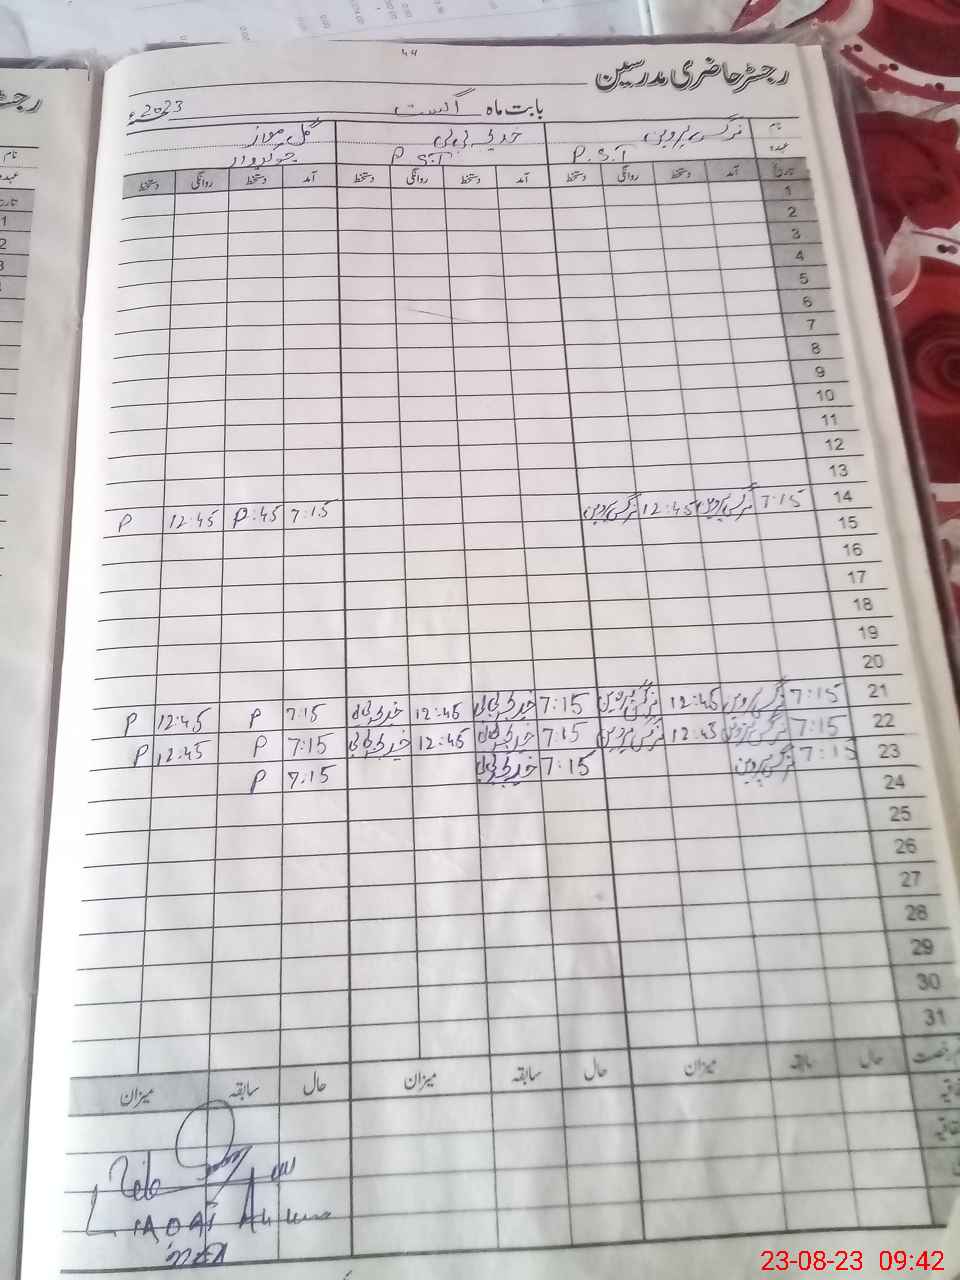 44
رجسٹر حاضری مدرسین
بابت ماہ اگست 2023ء
نام نرگس پروین خدیجہ بی بی گل مواز
عہدہ P.S.T P.S.T چوکیدار
تاریخ آمد دستخط روانگی دستخط آمد دستخط روانگی دستخط آمد دستخط روانگی دستخط
1
2
3
4
5
6
7
8
9
10
11
12
13
14 7:15 نرگس پروین 12:45 نرگس پروین 7:15 P:45 12:45 P
15
16
17
18
19
20
21 7:15 نرگس پروین 12:45 نرگس پروین 7:15 خدیجہ بی بی 12:45 خدیجہ بی بی 7:15 P 12:45 P
22 7:15 نرگس پروین 12:45 نرگس پروین 7:15 خدیجہ بی بی 12:45 خدیجہ بی بی 7:15 P 12:45 P
23 7:15 نرگس پروین 7:15 خدیجہ بی بی 7:15 P
24
25
26
27
28
29
30
31
حال سابقہ میزان حال سابقہ میزان حال سابقہ میزان
23-08-23 09:42